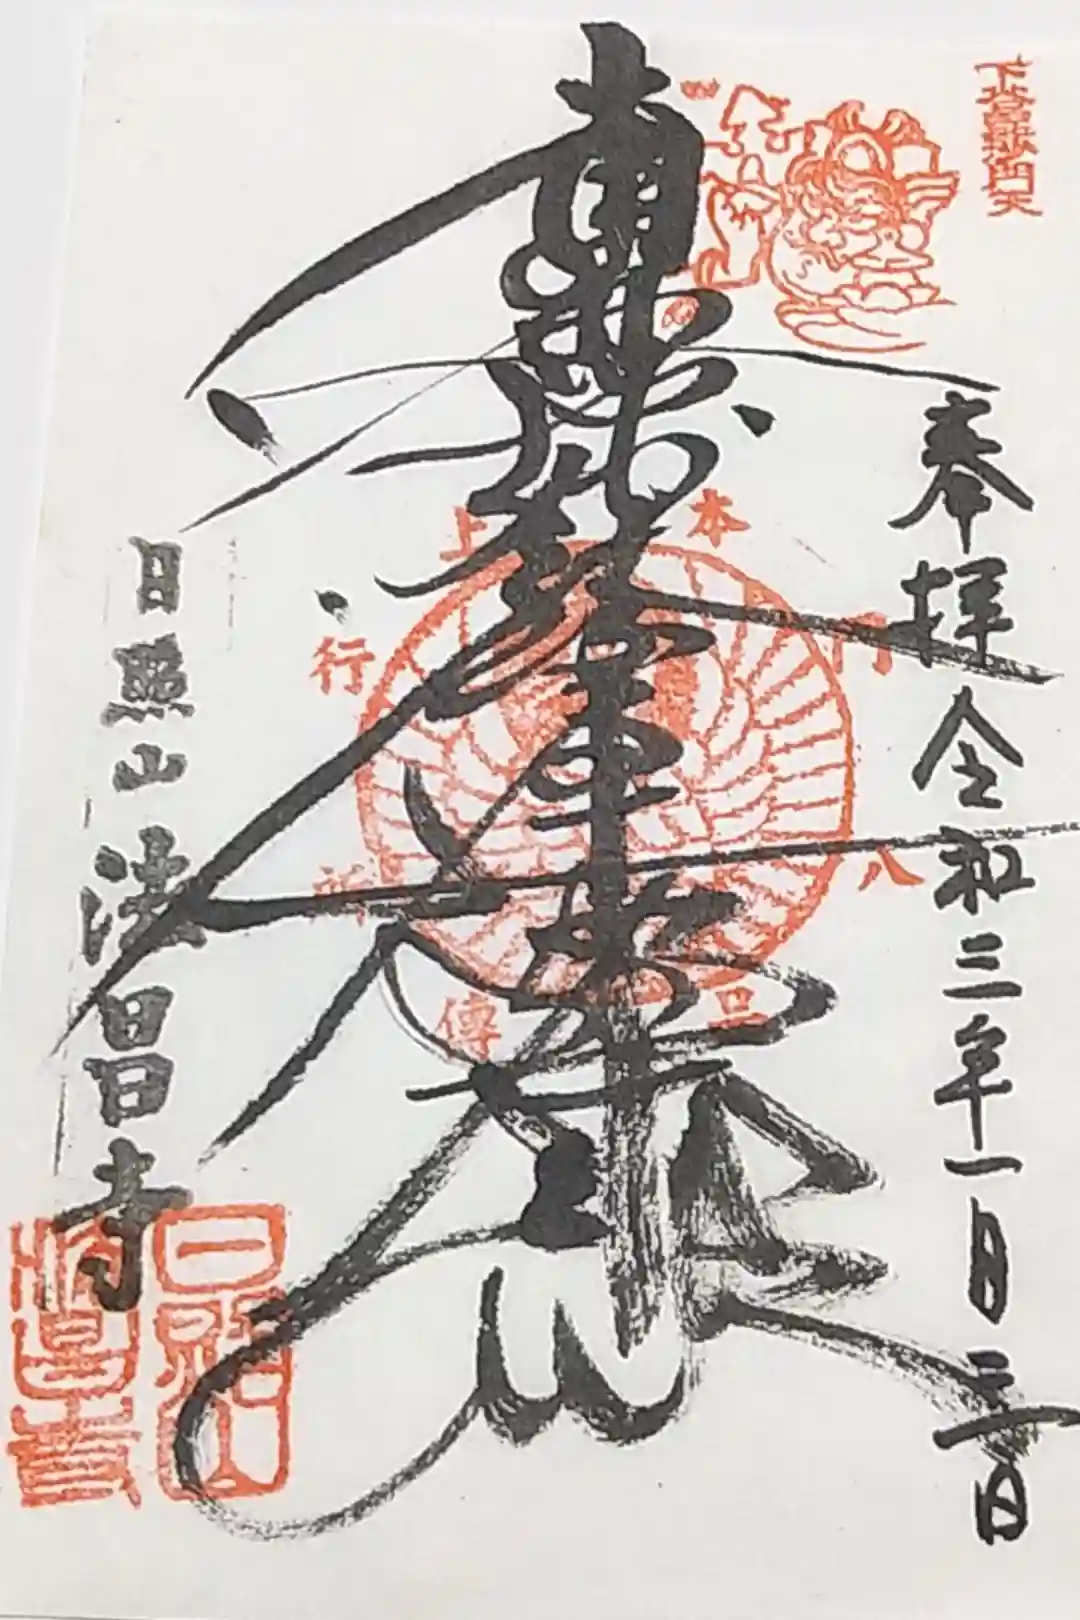 下谷毘沙門天
奉拝 令和三年一月三日
南無妙法蓮華経
本門八品上行所傳
日照山 法昌寺
日照山
法昌寺